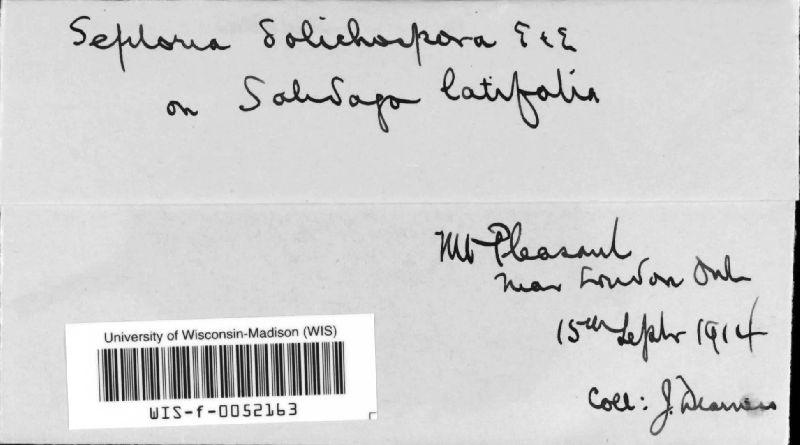 Septoria dolichospora E & E
on Solidago latifolia
Mt Pleasant
near London Ont
15th Septr 1914
Coll: J. Dearness
University of Wisconsin-Madison (WIS)
WIS-f-0052163